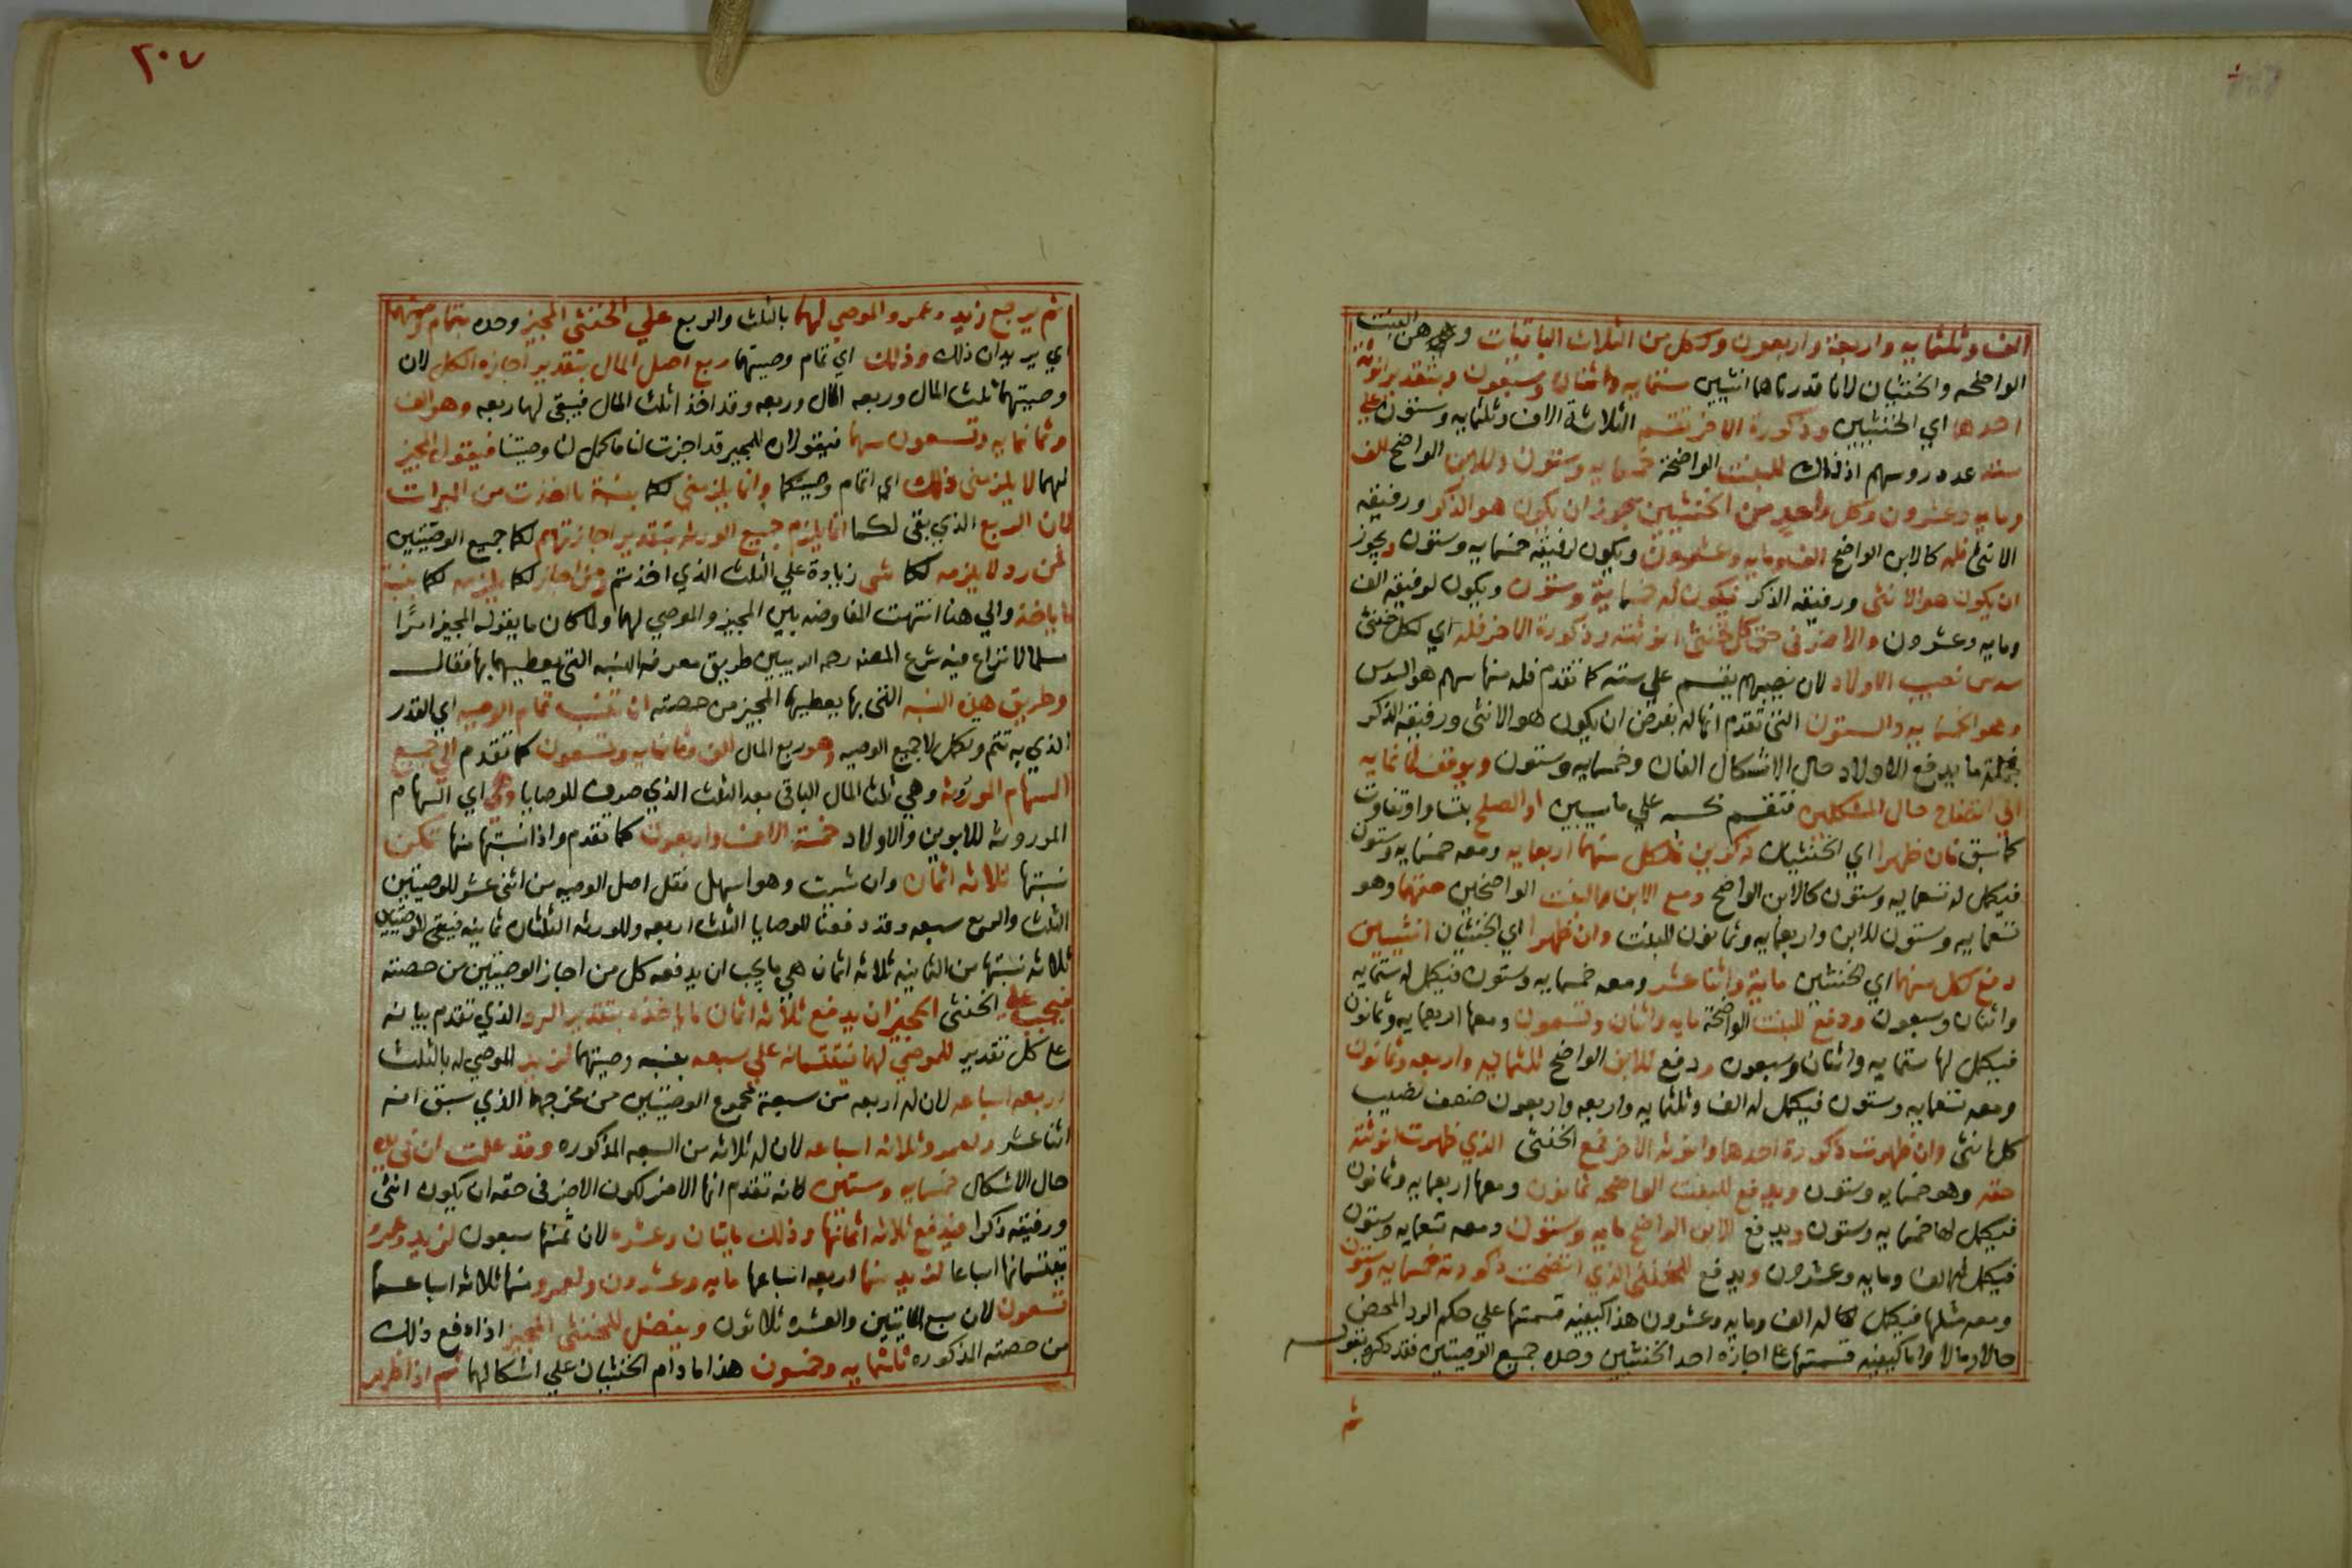 الف وثلثمايه واربعة واربعون ولكل من الثلاث الباقيات وهن البنت
الواضحه والخنثيان لانا قدرناهما انثيين ستمايه واثنان وسبعون وبتقدير انوثة
احدهما اي الخنثيين وذكورة الاخر تقسم الثلاثة الاف وثلثمايه وستون علي
سته عدد روسهم اذ ذاك للبنت الواضحة خمسمايه وستون وللابن الواضح الف
ومايه وعشرون وكل واحد من الخنثيين يجوز ان يكون هو الذكر ورفيقه
الانثي فله كالابن الواضح الف ومايه وعشرون ويكون لرفيقه خمسمايه وستون ويجوز
ان يكون هو الانثي ورفيقه الذكر فيكون له خمسماية وستون ويكون لرفيقه الف
ومايه وعشرون والاضر في حق كل خنثي انوثته وذكورة الاخر فله اي لكل خنثي
سدس نصيب الاولاد لان نصيبهم يقسم علي سته كما تقدم فله منها سهم هو السدس
وهو الخمسمايه والستون التي تقدم انها له بفرض ان يكون هو الانثي ورفيقه الذكر
فجملة ما يدفع للاولاد حال الاشكال الفان وخمسمايه وستون ويوقف ثمانمايه
الي اتضاح حال المشكلين فتقسم علي ما يبين او الصلح بتساو او تفاوت
كما سبق فان ظهرا اي الخنثيان ذكرين فلكل منهما اربعمايه ومعه خمسمايه وستون
فيكمل له تسعمايه وستون كالابن الواضح ومع الابن والبنت الواضحين حقهما وهو
تسعمايه وستون للابن واربعمايه وثمانون للبنت وان ظهرا اي الخنثيان انثيين
دفع لكل منهما اي الخنثيين ماية واثنا عشر ومعه خمسمايه وستون فيكمل له ستمايه
واثنان وسبعون ودفع للبنت الواضحة مايه واثنان وتسعون ومعها اربعمايه وثمانون
فيكمل لها ستمايه واثنان وسبعون ودفع للابن الواضح ثلثمايه واربعه وثمانون
ومعه تسعمايه وستون فيكمل له الف وثلثمايه واربعه واربعون ضعف نصيب
كل انثي وان ظهرت ذكورة احدهما وانوثه الاخر فمع الخنثي الذي ظهرت انوثته
حقه وهو خمسمايه وستون ويدفع للبنت الواضحه ثمانون ومعها اربعمايه وثمانون
فيكمل لها خمسمايه وستون ويدفع للابن الواضح مايه وستون ومعه تسعمايه وستون
فيكمل له الف ومايه وعشرون ويدفع للخنثي الذي اتضحت ذكورته خمسمايه وستون
ومعه مثلها فيكمل له الف ومايه وعشرون هذا كيفيه قسمتها علي حكم الرد المحض
حالا ومالا واما كيفيه قسمتها علي اجازه احد الخنثيين وحده جميع الوصيتين فقد ذكره بقوله
ثم
٢٠٧
ثم يرجع زيد وعمرو الموصي لهما بالثلث والربع علي الخنثي المجيز وحده بتمام وصيتهما
اي يريدان ذلك وذلك اي تمام وصيتهما ربع اصل المال بتقدير اجازه الكل لان
وصيتهما ثلث المال وربعه وقد اخذا ثلث المال فيبقي لهما ربعه وهو الف
وثمانمايه وتسعون سهما فيقولان للمجيز قد اجزت لنا فاكمل لنا وصيتنا فيقول المجيز
لهما لا يلزمني ذلك اي اتمام وصيتكما وانما يلزمني لكما بنسبة ما اخذت من الميراث
لان الربع الذي بقي لكما انما يلزم جميع الورثه بتقدير اجازتهم لكما جميع الوصيتين
فمن رد لا يلزمه لكما شي زيادة علي الثلث الذي اخذتم ومن اجاز لكما يلزمه لكما بنسبة
ما ياخذه والي هنا انتهت المفاوضه بين المجيز والموصي لهما ولما كان ما يقوله المجيز امرًا
مسلما لا نزاع فيه شرع المصنف رحمه الله يبين طريق معرفه النسبه التي يعطيهما بها فقال
وطريق هذه النسبه التي بها يعطيهما المجيز من حصته ان تنسب تمام الوصيه اي القدر
الذي به تتم وتكمل لهما جميع الوصيه وهو ربع المال الف وثمانمايه وتسعون كما تقدم الي جميع
السهام الموروثه وهي ثلثا المال الباقي بعد الثلث الذي صرف للوصايا وهي اي السهام
الموروثه للابوين والاولاد خمسة الاف واربعون كما تقدم واذا نسبتها منها تكن
نسبتها ثلاثه اثمان وان شيت وهو اسهل فقل اصل الوصيه من اثني عشر للوصيتين
الثلث والربع سبعه وقد دفعنا للوصايا الثلث اربعه وللورثه الثلثان ثمانيه فيبقي للوصيتين
ثلاثه نسبتها من الثمانيه ثلاثه اثمان هي ما يجب ان يدفعه كل من اجاز الوصيتين من حصته
فيجب علي الخنثي المجيز ان يدفع ثلاثه اثمان ما ياخذه بتقدير الرد الذي تقدم بيانه
علي كل تقدير للموصي لهما فيقتسمانه علي سبعه بنسبه وصيتهما لزيد الموصي له بالثلث
اربعه اسباعه لان له اربعه من سبعة مجموع الوصيتين من مخرجهما الذي سبق انه
اثنا عشر ولعمرو ثلاثه اسباعه لان له ثلاثه من السبعه المذكوره وقد علمت ان في يده
حال الاشكال خمسمايه وستين لانه تقدم انها الاضر لكون الاضر في حقه ان يكون انثي
ورفيقه ذكرا فيدفع ثلاثه اثمانها وذلك مايتان وعشره لان ثمنها سبعون لزيد وعمرو
يقتسمانها اسباعا لزيد منها اربعه اسباعها مايه وعشرون ولعمرو منها ثلاثه اسباعها
تسعون لان سبع المايتين والعشره ثلاثون ويفضل للخنثي المجيز اذا دفع ذلك
من حصته المذكوره ثلثمايه وخمسون هذا ما دام الخنثيان علي اشكالهما ثم اذا ظهر